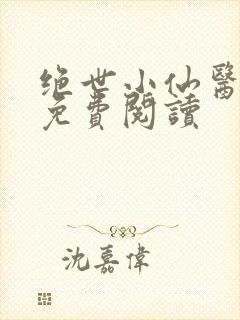 绝世小仙醫
免費閱讀
沈嘉偉